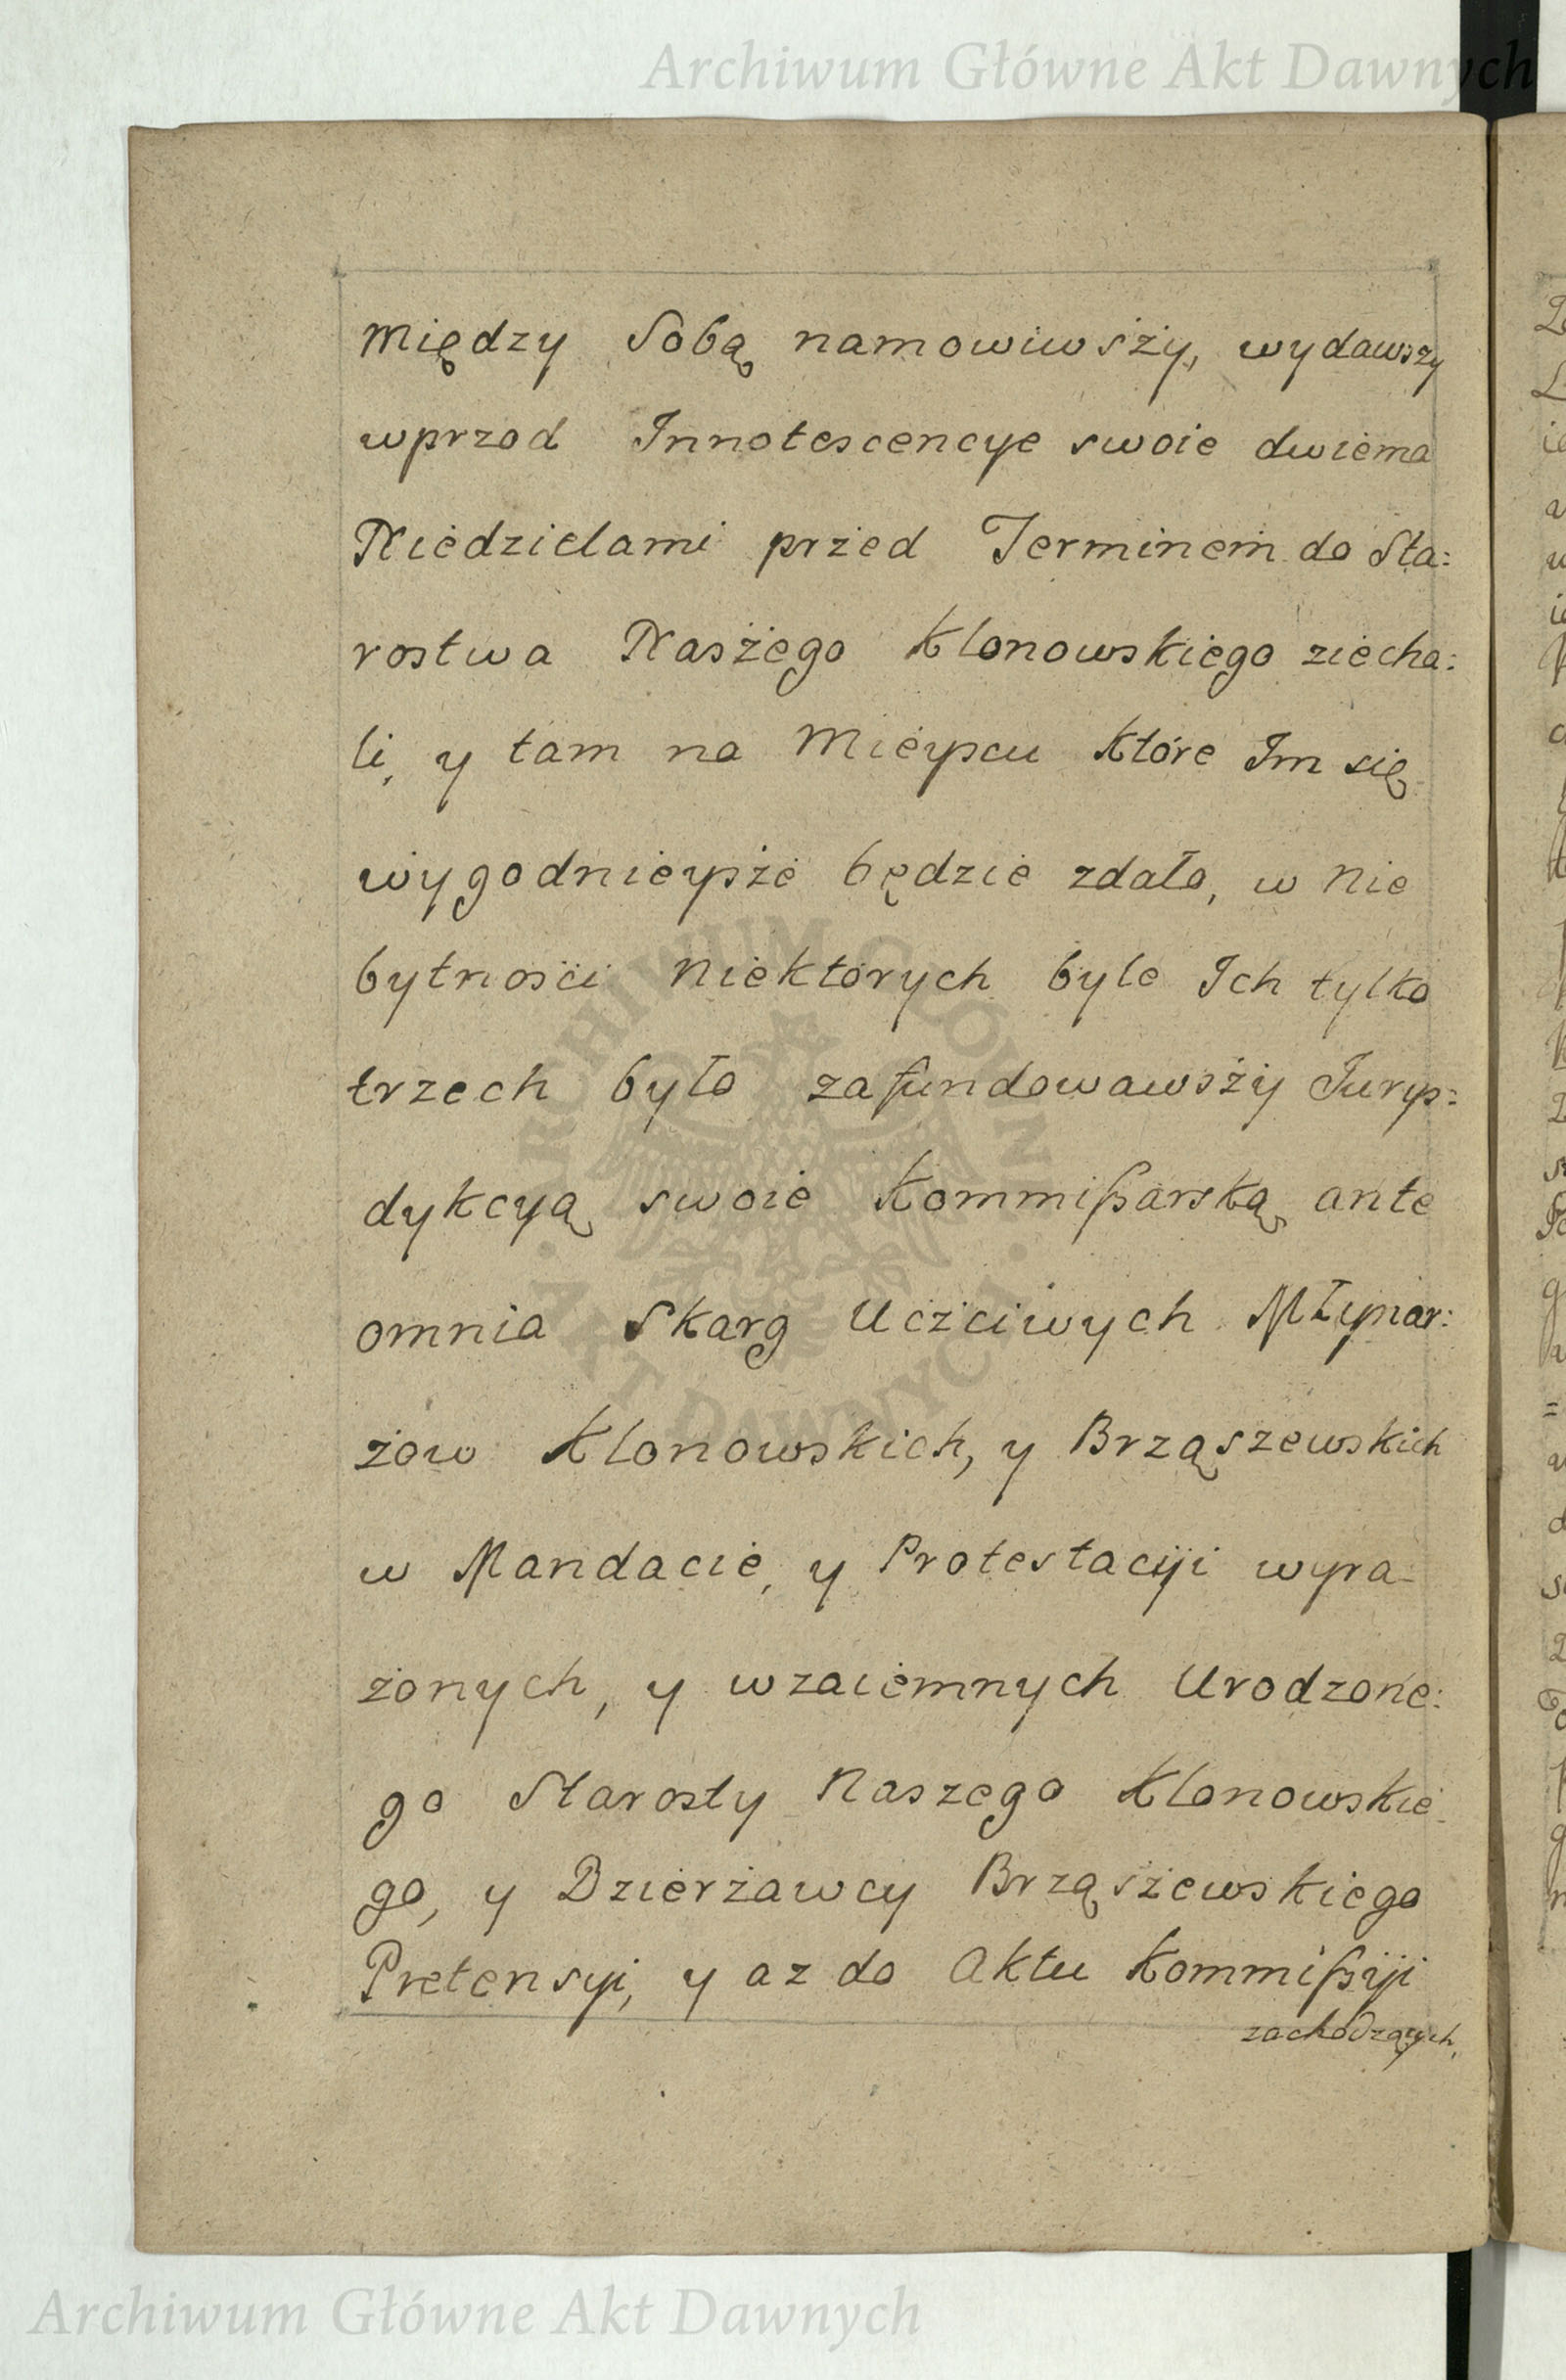 Archiwum Główne Akt Dawnych
Między Sobą namowiwśży, wydawszy
wprzod Innotescencye swoie dwiema
Niedzielami przed Terminem do Sta:
rostwa Naszego Klonowskiego ziecha:
li, y tam na Mieyscu które Im się
wygodnieysze będzie zdało, w nie
bytnośći niektórych byle Ich tylko
trzech było zafundowawszy Jurys:
dykcyą swoie Kommißarską ante
omnia Skarg Uczciwych Młynar:
zow Klonowskich, y Brząszewskich
w Mandacie, y Protestacyji wyra-
żonych, y wzaiemnych Urodzone:
go Starosty Naszego Klonowskie
go, y Dzierżawcy Brząszewskiego
Pretensyi, y az do Aktu Kommißyji
zachodzących,
ARCHIWUM GŁÓWNE AKT DAWNYCH
Archiwum Główne Akt Dawnych